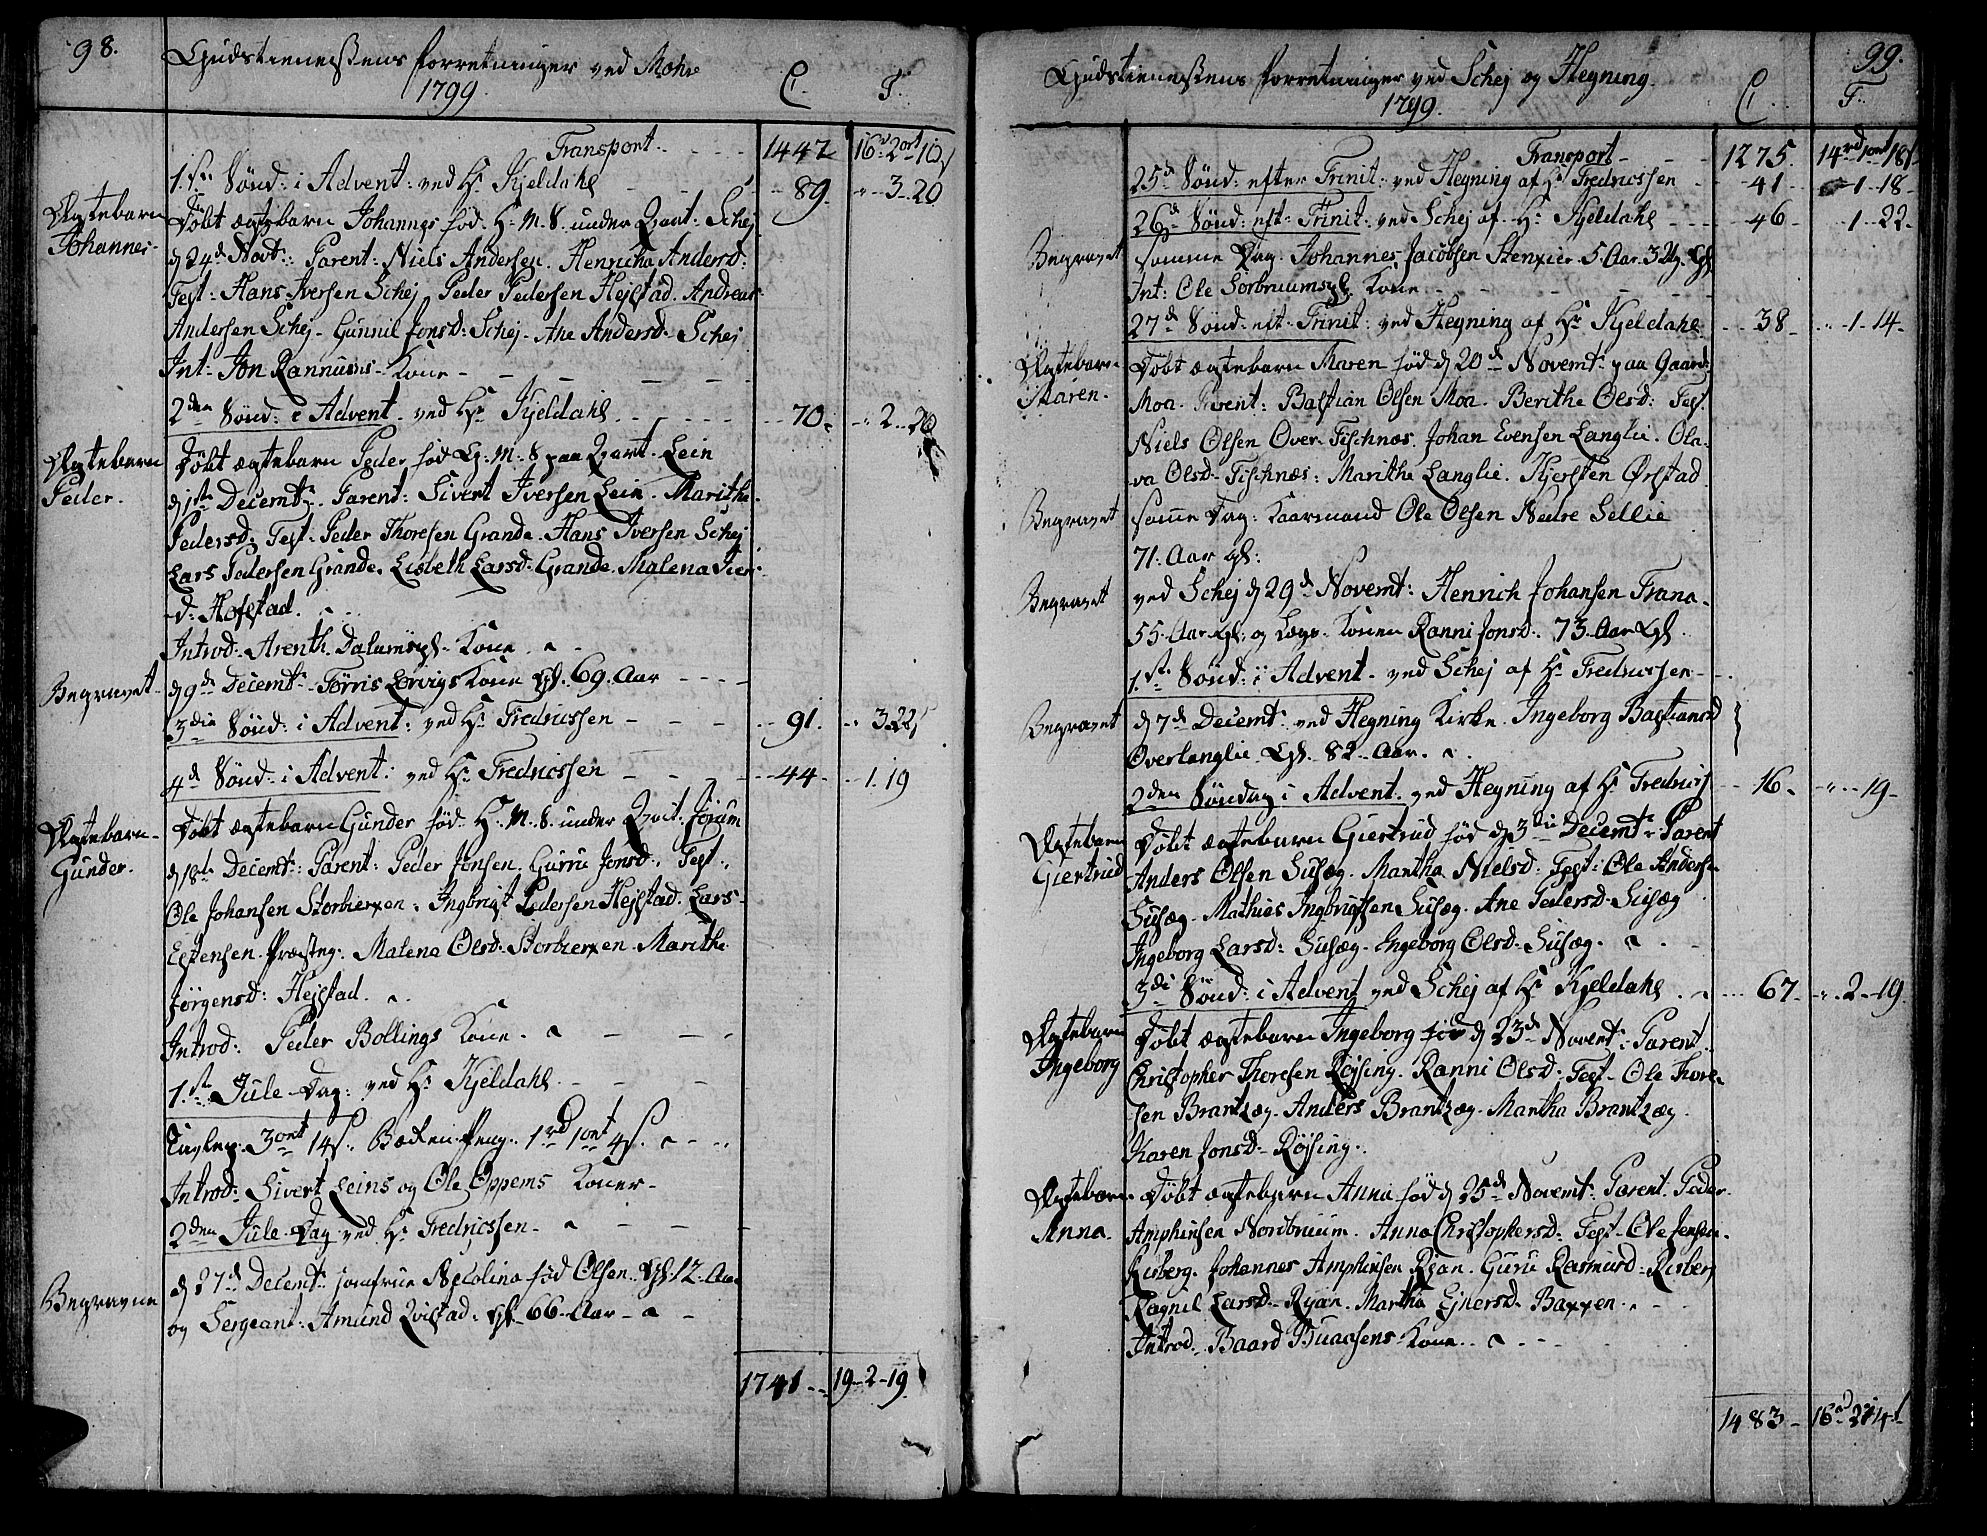 98.
Gudstienestens forretninger ved Mohre
1799.
C.
T.
Transport. 1447 16rd 2ort 10s
1.ste Sønd: i Advent: ved Hr Kjeldahl 89. 3. 20
Ægtebarn
Johannes.
Døbt ægtebarn Johannes fød H. M. S. under Qvart: Schej
d 24de Novt: Parent: Niels Andersen. Henricha Andersd:
Test: Hans Iversen Schej Peder Pedersen Hejstad. Andreas
Andersen Schej. Gunnil Jonsd: Schej. Ane Andersd. Schej
Int: Jon Rannums Kone
2den Sønd: i Advent. ved Hr Kjeldahl 70. 2. 20
Ægtebarn
Peder.
Døbt ægtebarn Peder fød H. M. S paa Qvart. Lein
d 1ste Decemt. Parent: Sivert Iversen Lein. Marithe
Pedersd. Test. Peder Thoresen Grande. Hans Iversen Schej
Lars Pedersen Grande. Lisbeth Larsd. Grande. Malena Iver
d: Hofstad.
Introd. Arenth. Dalumspl. Kone.
Begravet.
d 9de Decemt. Tørris Lorvigs Kone Gl. 69. Aar
3die Sønd: i Advent: ved Hr Fredricssen 91. 3. 22
4de Sønd: i Advent: ved Hr Fredricssen 44 1. 19
Ægtebarn
Gunder.
Døbt ægtebarn Gunder fød H. M. S. under Qvart. Jørum
d 18de Decemt: Parent: Peder Jonsen. Gurru Jonsd: Test:
Ole Johansen Storbierxen. Ingbrigt Pedersen Hejstad. Lars
Estensen Præsteg: Malena Olsd. Storbierxen. Marithe
Jørgensd: Hejstad.
Introd: Peder Bollings Kone.
1.ste Jule Dag: ved Hr Kjeldahl.
3ort 14s. Becken Peng. 1rd 1ort 4s.
Introd: Sivert Leins og Ole Oppems Koner
2den Jule Dag ved Hr Fredricssen
Begravne
d 27de Decemt. Jomfrue Nicolina fød Olsen. Gl. 12. Aar
og Sergeant. Amund Qvistad. gl. 66. Aar
1741 19-2-19.
99.
Gudstienestens forretninger ved Schej og Hegning.
1799.
C.
T.
Transport 1275. 14rd 1ort 18s
25de Sønd: efter Trinit: ved Hegning af Hr Fredricssen 41 1. 18
26de Sønd: eft: Trinit: ved Schej af Hr Kjeldahl 46 1. 22.
Begravet
samme Dag. Johannes Jacobsen Stenxier. 5 Aar. 3 Ug. Gl
Int: Ole Sorbruumspl. Kone
27de Sønd: eft: Trinit: ved Hegning af Hr Kjeldahl 38 1. 14.
Ægtebarn
Maren.
Døbt ægtebarn Maren fød d 20de Novemt. paa Gaard:
Moa. Parent: Bastian Olsen Moa. Berithe Olsd: Test.
Niels Olsen Over-Fischnæs. Johan Evensen Langlie. Ola-
va Olsd. Fischnæs. Marithe Langlie. Kjersten Ørstad
Begravet
samme Dag: Kaarmand Ole Olsen Nedre Sellie
71. Aar gl:
Begravet
ved Schej d 29de Novemt: Henrich Johansen Trana.
55. Aar gl. og Lægs Konen Ranni Jonsd: 73. Aar Gl
1.ste Sønd: i Advent. ved Schej af Hr Fredricssen
Begravet
d 7de Decemt. ved Hegning Kirke. Ingeborg Bastiansd
Overlanglie Gl. 82. Aar.
2den Søndag i Advent. ved Hegning af Hr Fredrics 16. 19
Ægtebarn
Giertrud
Døbt ægtebarn Giertrud fød d 3die Decemt. Parent
Anders Olsen Susæg. Martha Nielsd: Test: Ole Anderse
Susæg. Mathies Ingbrigtsen Susæg. Ane Pedersd. Susæg
Ingeborg Larsd: Susæg. Ingeborg Olsd. Susæg.
3die Sønd: i Advent ved Schej af Hr Kjeldahl 67. 2. 19.
Ægtebarn
Ingeborg
Døbt ægtebarn Ingeborg fød d 23de Novemt: Parent
Christopher Thoresen Røjsing. Ranni Olsd: Test. Ole Thore-
sen Brantzæg. Anders Brantzæg. Martha Brantzæg.
Karen Jonsd. Røjsing.
Ægtebarn
Anna.
Døbt ægtebarn Anna fød d 25de Novemt: Parent. Peder
Amphinsen Nordbruum. Anna Christophersd: Test. Ole Jensen
Risberg. Johannes Amphinsen Ryan. Guru Rasmusd. Risberg
Ragnil Larsd. Ryan. Martha Ejnersd. Baxxen.
Introd. Baard Buaasens Kone.
1483 16rd 2 14